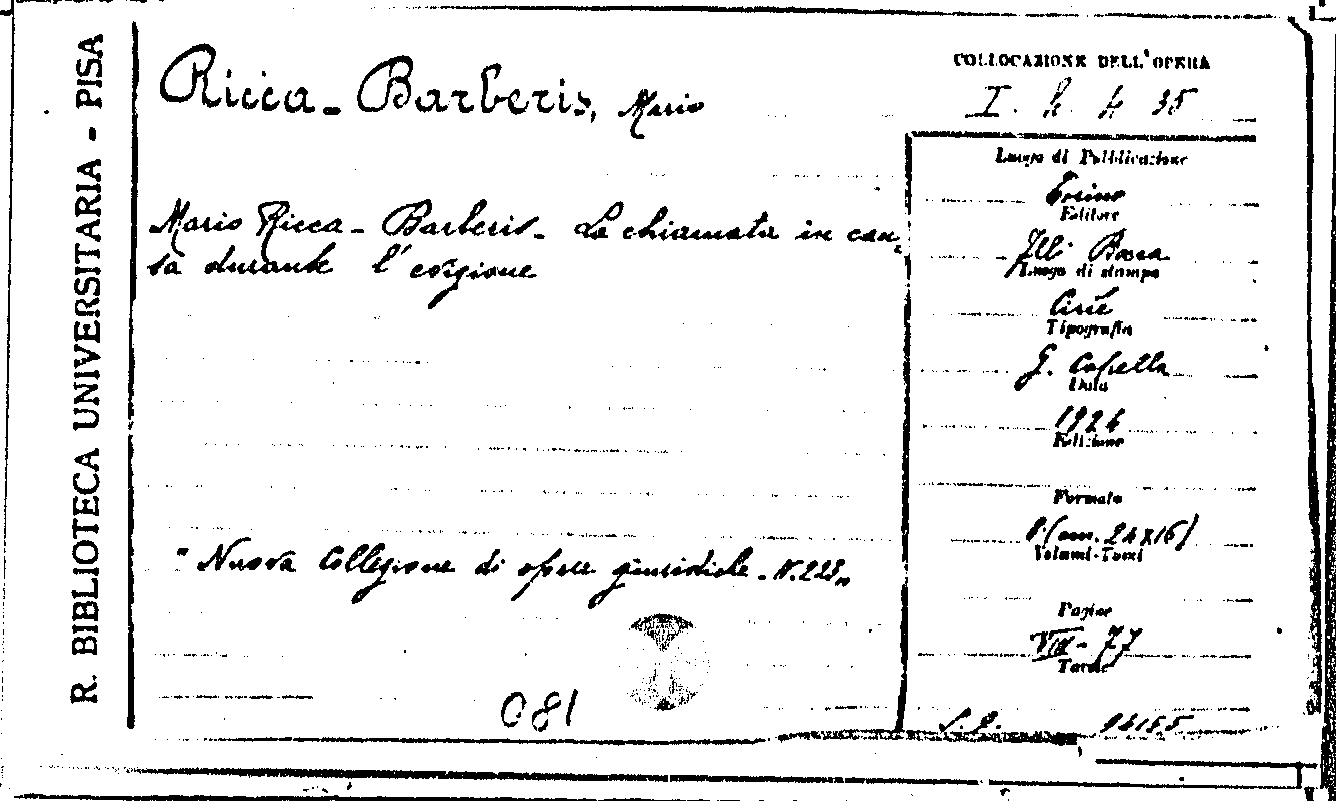 R. BIBLIOTECA UNIVERSITARIA - PISA
Ricca-Barberis, Mario
Mario Ricca-Barberis- La chiamata in cau-
sa durante l'
"Nuova Collezione di opere giuridiche - N. 223"
081
COLLOCAZIONE DELL'OPERA
I. h. 4 35
Luogo di Pubblicazione
Torino
Editore
F.lli Bocca
Luogo di stampa
Ciriè
Tipografia
G. Capella
Data
1924
Edizione
Formato
8° (cm. 24x16)
Volumi-Tomi
Pagine
VIII-77
Tavole